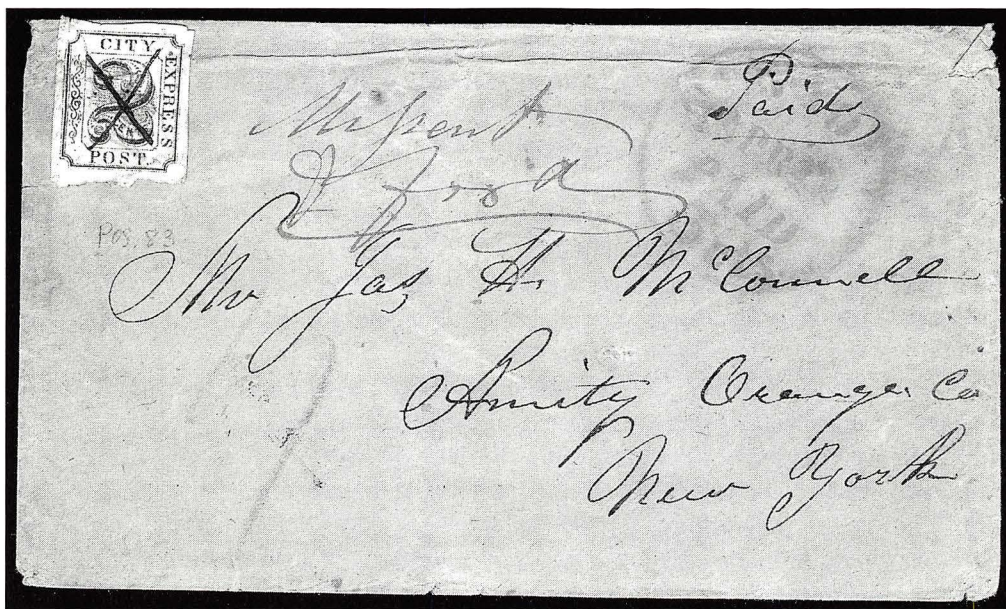 CITY
EXPRESS
POST.
2
CENTS
Paid
Missent
& ford
Pos. 83
Mr Jas, H. McConnell
Amity Orange Co
New York
PAID